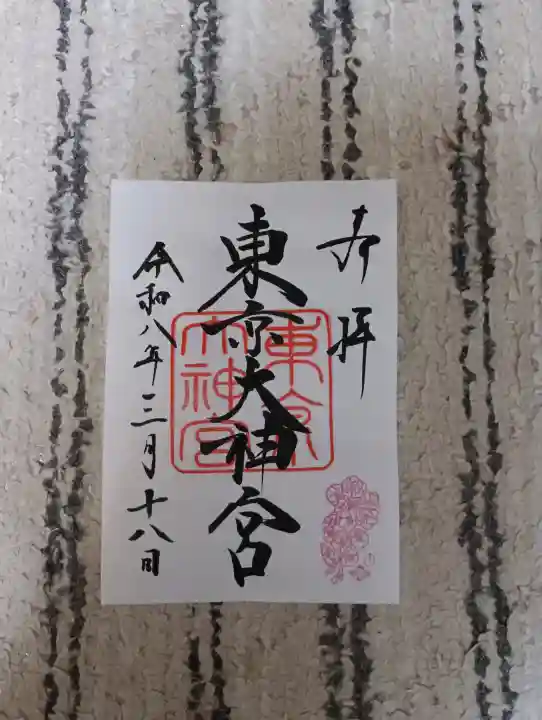 奉拝
東京大神宮
東京大神宮
令和八年三月十八日